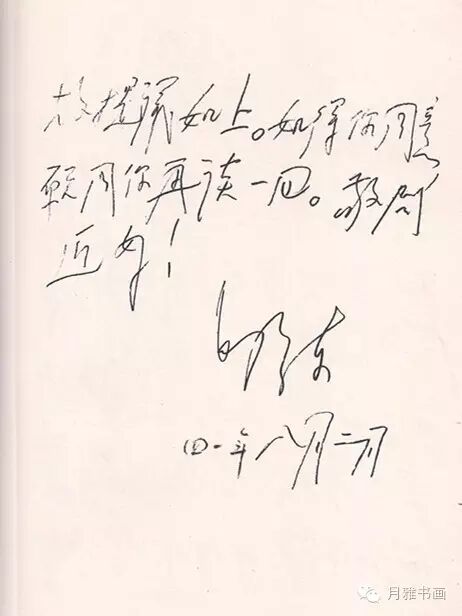 故提议如上。如得你同意
愿同你再谈一回。敬问
近好！
毛泽东
四一年八月二日
月雅书画